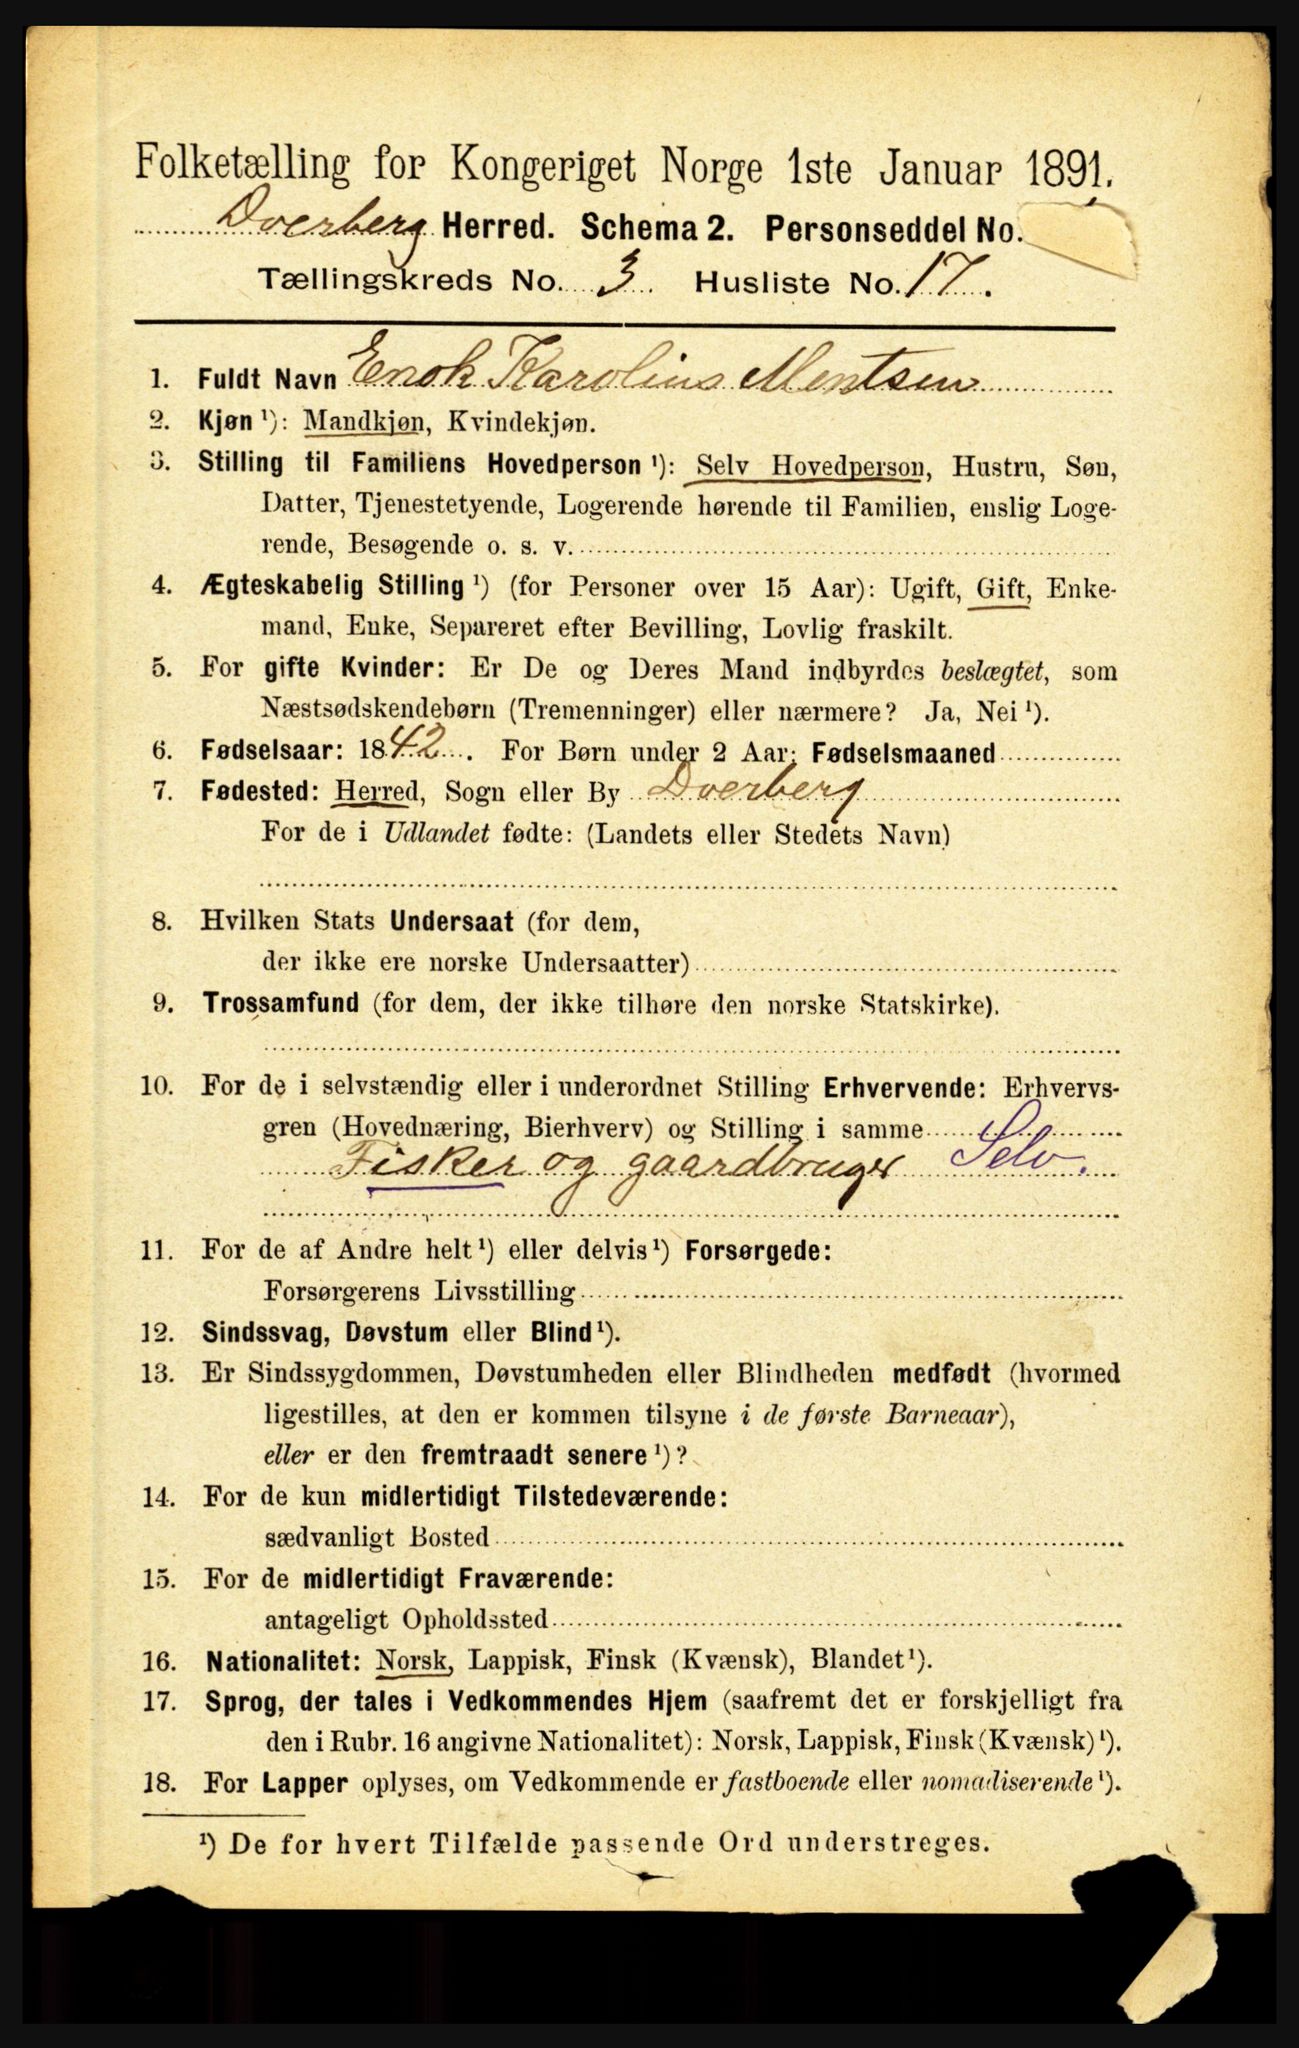 Folketælling for Kongeriget Norge 1ste Januar 1891.
Dverberg Herred. Schema 2. Personseddel No.
Tællingskreds No. 3 Husliste No. 17.
1. Fuldt Navn Enok Karolius Mentsen
2. Kjøn ¹): Mandkjøn, Kvindekjøn.
3. Stilling til Familiens Hovedperson ¹): Selv Hovedperson, Hustru, Søn,
Datter, Tjenestetyende, Logerende hørende til Familien, enslig Loge-
rende, Besøgende o. s. v.
4. Ægteskabelig Stilling ¹) (for Personer over 15 Aar): Ugift, Gift, Enke-
mand, Enke, Separeret efter Bevilling, Lovlig fraskilt.
5. For gifte Kvinder: Er De og Deres Mand indbyrdes beslægtet, som
Næstsødskendebørn (Tremenninger) eller nærmere? Ja, Nei ¹).
6. Fødselsaar: 1842. For Børn under 2 Aar: Fødselsmaaned
7. Fødested: Herred, Sogn eller By Dverberg
For de i Udlandet fødte: (Landets eller Stedets Navn)
8. Hvilken Stats Undersaat (for dem,
der ikke ere norske Undersaatter)
9. Trossamfund (for dem, der ikke tilhøre den norske Statskirke).
10. For de i selvstændig eller i underordnet Stilling Erhvervende: Erhvervs-
gren (Hovednæring, Bierhverv) og Stilling i samme
Fisker og gaardbruger Selv.
11. For de af Andre helt ¹) eller delvis ¹) Forsørgede:
Forsørgerens Livsstilling
12. Sindssvag, Døvstum eller Blind ¹).
13. Er Sindssygdommen, Døvstumheden eller Blindheden medfødt (hvormed
ligestilles, at den er kommen tilsyne i de første Barneaar),
eller er den fremtraadt senere ¹)?
14. For de kun midlertidigt Tilstedeværende:
sædvanligt Bosted
15. For de midlertidigt Fraværende:
antageligt Opholdssted
16. Nationalitet: Norsk, Lappisk, Finsk (Kvænsk), Blandet ¹).
17. Sprog, der tales i Vedkommendes Hjem (saafremt det er forskjelligt fra
den i Rubr. 16 angivne Nationalitet): Norsk, Lappisk, Finsk (Kvænsk) ¹).
18. For Lapper oplyses, om Vedkommende er fastboende eller nomadiserende ¹).
¹) De for hvert Tilfælde passende Ord understreges.